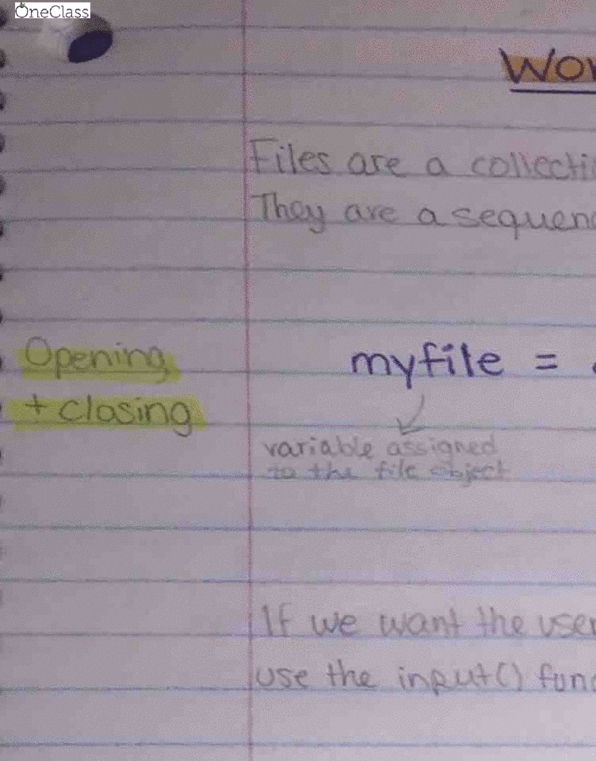 OneClass
Wor
Files are a collecti
They are a sequenc
Opening
+ closing
myfile =
variable assigned
to the file object
If we want the user
use the input() func